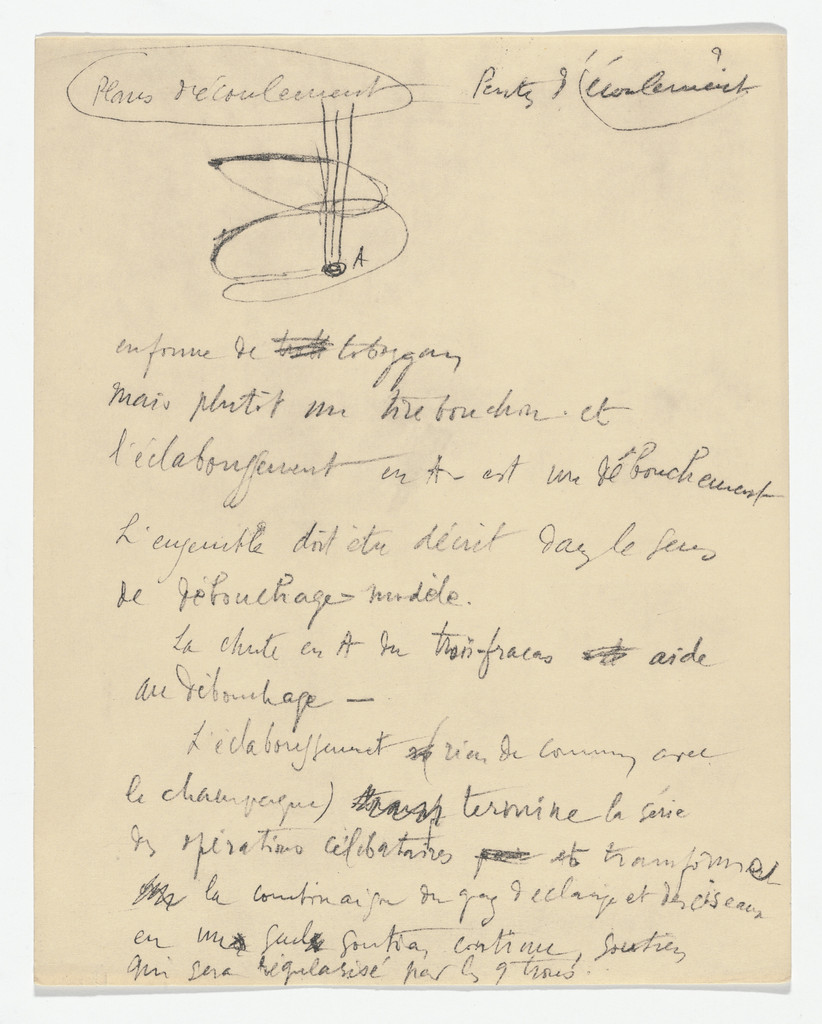 Plans d'écoulement
Pentes d'écoulement
A
en forme de toboggan
mais plutôt un tire bouchon. et
l'éclaboussement en A – est un débouchement
L'ensemble doit être décrit dans le sens
de débouchage-modèle.
La chute en A du trois-fracas aide
au débouchage –
L'éclaboussement (rien de commun avec
le champagne) termine la série
des opérations célibataires et transforme
la combinaison du gaz d'eclairage et des ciseaux
en un seul soutien continu, soutien
qui sera régularisé par les 9 trous.